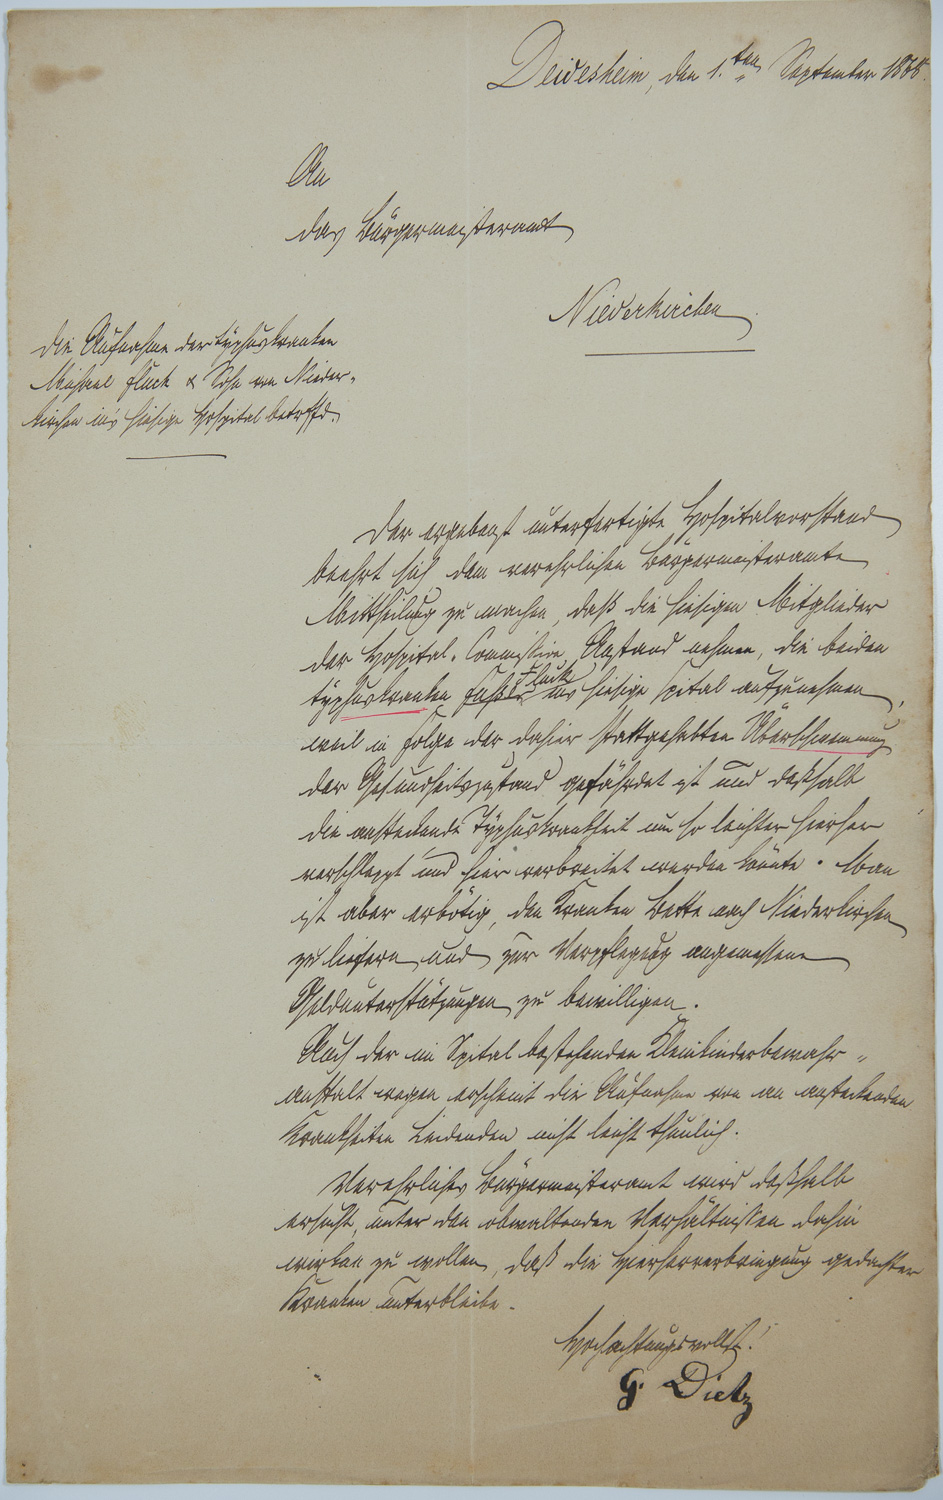 Deidesheim, den 1.ten September 1868.
An
das Bürgermeisteramt
Niederkirchen
Die Aufnahme der typhuskranken
Michael Fluck & Sohn von Nieder-
kirchen in's hiesige Hospital betrffd.
Der ergebenst unterfertigte Hospitalvorstand
beehrt sich dem verehrlichen Bürgermeisteramte
Mittheilung zu machen, daß die hiesigen Mitglieder
der Hospital-Commission Anstand nehmen, die beiden
typhuskranken Fluck ins hiesige Spital aufzunehmen,
weil in Folge der dahier stattgehabten Überschwemmung
der Gesundheitszustand gefährdet ist und deßhalb
die ansteckende Typhuskrankheit um so leichter hierher
verschleppt und hier verbreitet werden könnte. Man
ist aber erbötig, den Kranken Bette nach Niederkirchen
zu liefern und zur Verpflegung angemessene
Geldunterstützungen zu bewilligen.
Auch der im Spital bestehenden Kleinkinderbewahr-
anstalt wegen erscheint die Aufnahme von an ansteckenden
Krankheiten Leidenden nicht leicht thunlich.
Verehrliches Bürgermeisteramt wird deßhalb
ersucht, unter den obwaltenden Verhältnissen dahin
wirken zu wollen, daß die Hierherverbringung gedachter
Kranken unterbleibe.
Hochachtungsvollst!
G. Dietz